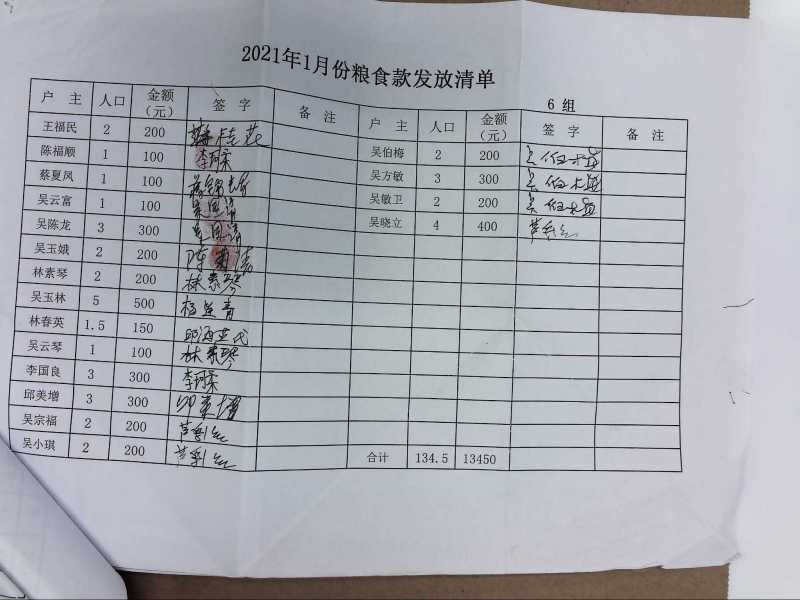 2021年1月份粮食款发放清单
6 组
户 主 人口 金额（元） 签 字 备 注 户 主 人口 金额（元） 签 字 备 注
王福民 2 200 桂花 吴伯梅 2 200 吴伯梅
陈福顺 1 100 李珂深 吴方敏 3 300 吴伯梅
蔡夏凤 1 100 吴敏卫 2 200 吴伯梅
吴云富 1 100 吴晓立 4 400
吴陈龙 3 300
吴玉娥 2 200 陈
林素琴 2 200 林素琴
吴玉林 5 500
林春英 1.5 150
吴云琴 1 100 林素琴
李国良 3 300 李珂深
邱美增 3 300 邱美增
吴宗福 2 200
吴小琪 2 200 合计 134.5 13450